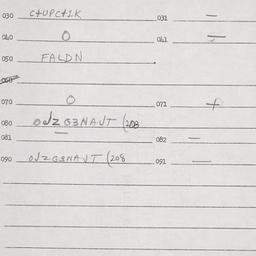 030 C+UPC+IK 031 —
040 O 041
050 FALDN
060
070 O 071 +
080 OJZ G3NAJT (208
081 — 082 —
090 OJZ G3NAJT (208 091 —